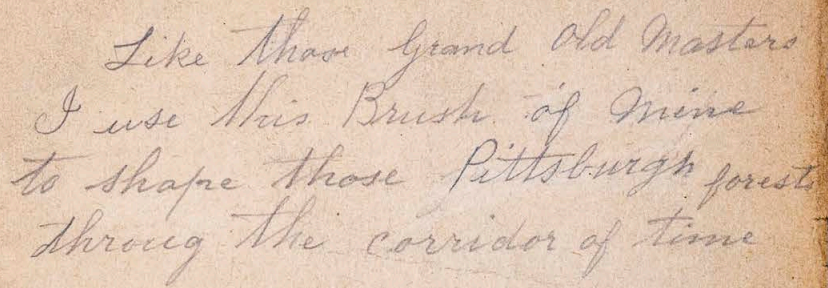 Like those Grand Old Masters
I use this Brush of Mine
to shape those Pittsburgh forests
throug the corridor of time